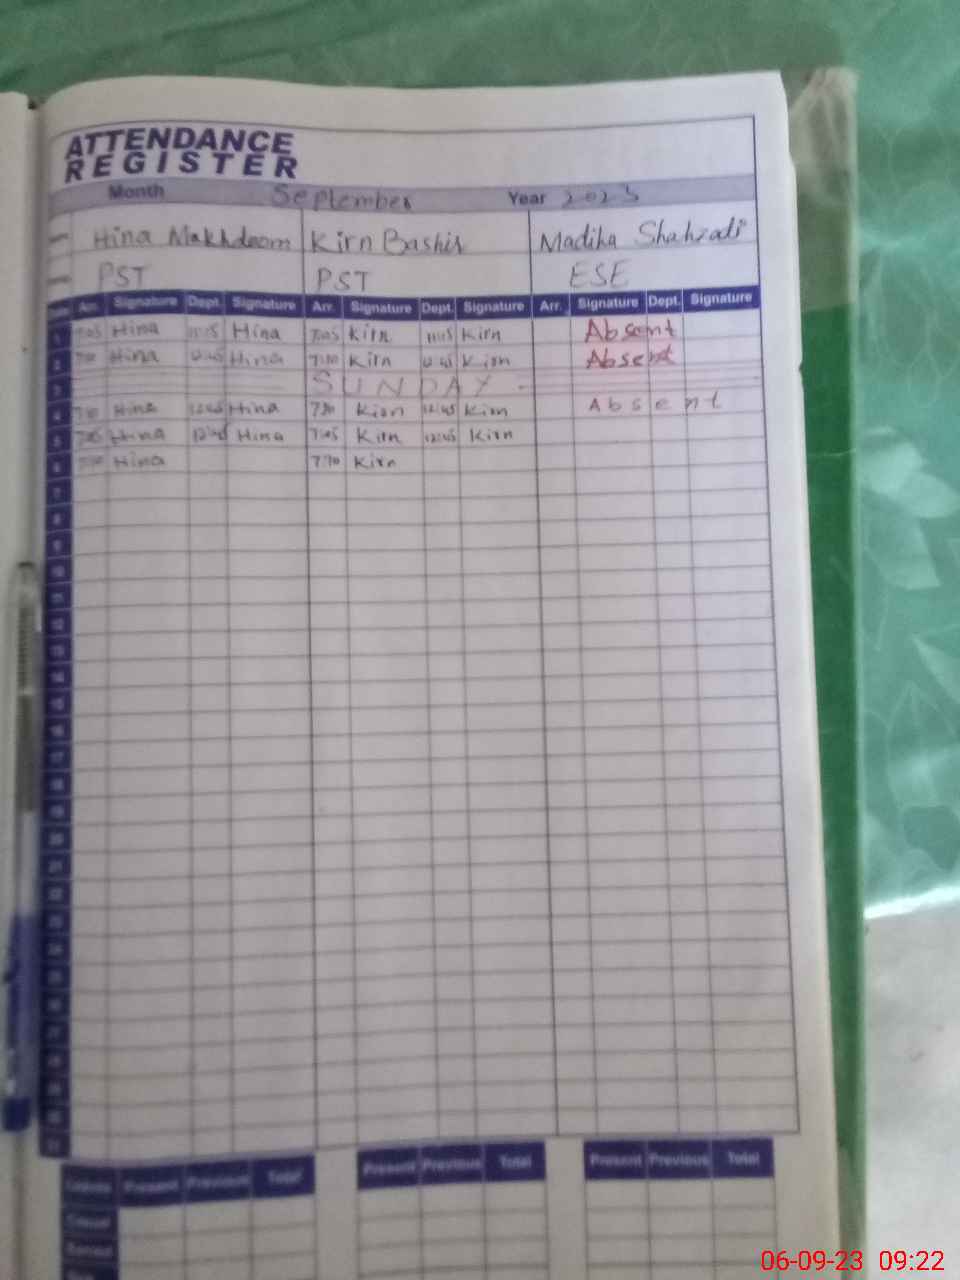 ATTENDANCE
REGISTER
Month September Year 2023
Hina Makhdoom Kirn Bashir Madiha Shahzadi
PST PST ESE
Arr. Signature Dept. Signature Arr. Signature Dept. Signature Arr. Signature Dept. Signature
1 7:05 Hina 11:15 Hina 7:05 Kirn 11:15 Kirn Absent
2 Hina 12:45 Hina 7:10 Kirn 12:45 Kirn Absent
3 SUNDAY.
4 Hina 12:45 Hina 7:10 Kirn 12:45 Kirn Absent
5 7:05 Hina 12:45 Hina 7:05 Kirn 12:45 Kirn
6 Hina 7:10 Kirn
7
8
9
10
11
12
13
14
15
16
17
18
19
20
21
22
23
24
25
26
27
Present Previous Total Present Previous Total Present Previous Total
Casual
06-09-23 09:22